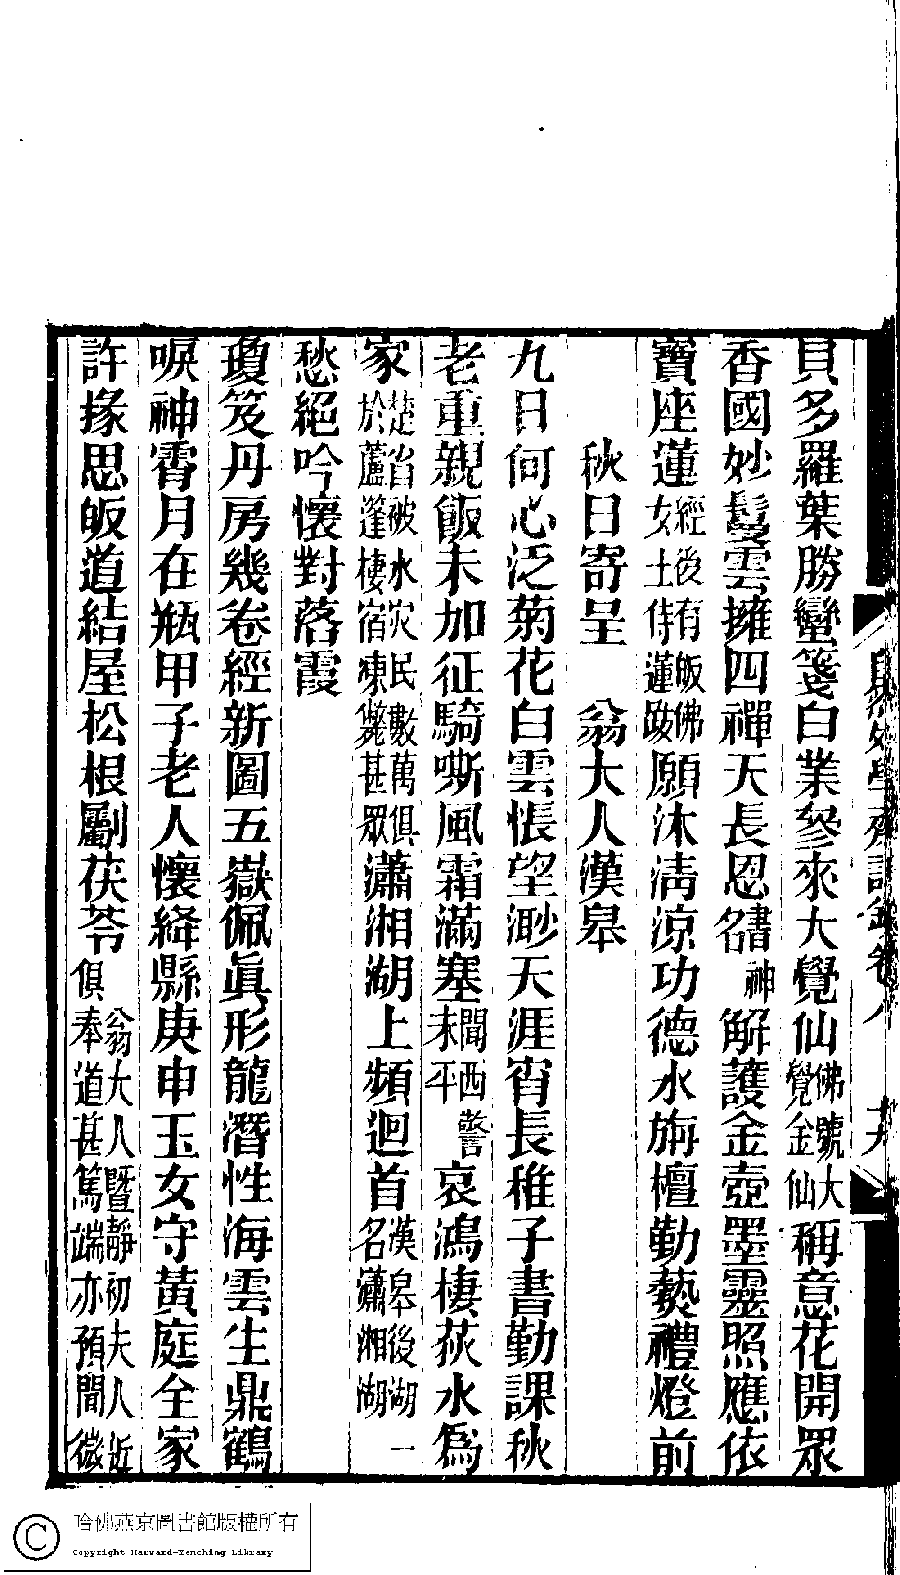 貝多羅葉勝蠻箋白業參來大覺仙佛號大覺金仙稱意花開眾
香國妙鬘雲擁四禪天長恩書神名解護金壺墨靈照應依
寶座蓮經後有皈佛女士侍蓮跋願沐清涼功德水旃檀勤爇禮燈前
秋日寄呈 翁大人漢皋
九日何心泛菊花白雲悵望渺天涯宵長稚子書勤課秋
老重親飯未加征騎嘶風霜滿塞聞西警未平哀鴻棲荻水為
家楚省被水灾民數萬俱於蘆篷棲宿凍斃甚眾瀟湘湖上頻迴首漢皋後湖一名瀟湘湖
愁絕吟懷對落霞
瓊笈丹房幾卷經新圖五嶽佩眞形龍潛性海雲生鼎鶴
唳神霄月在瓶甲子老人懷絳縣庚申玉女守黃庭全家
許掾思皈道結屋松根劚茯苓翁大人暨靜初夫人近俱奉道甚篤端亦預聞微
卷八
十九
哈佛燕京圖書館版權所有
Copyright Harvard-Yenching Library